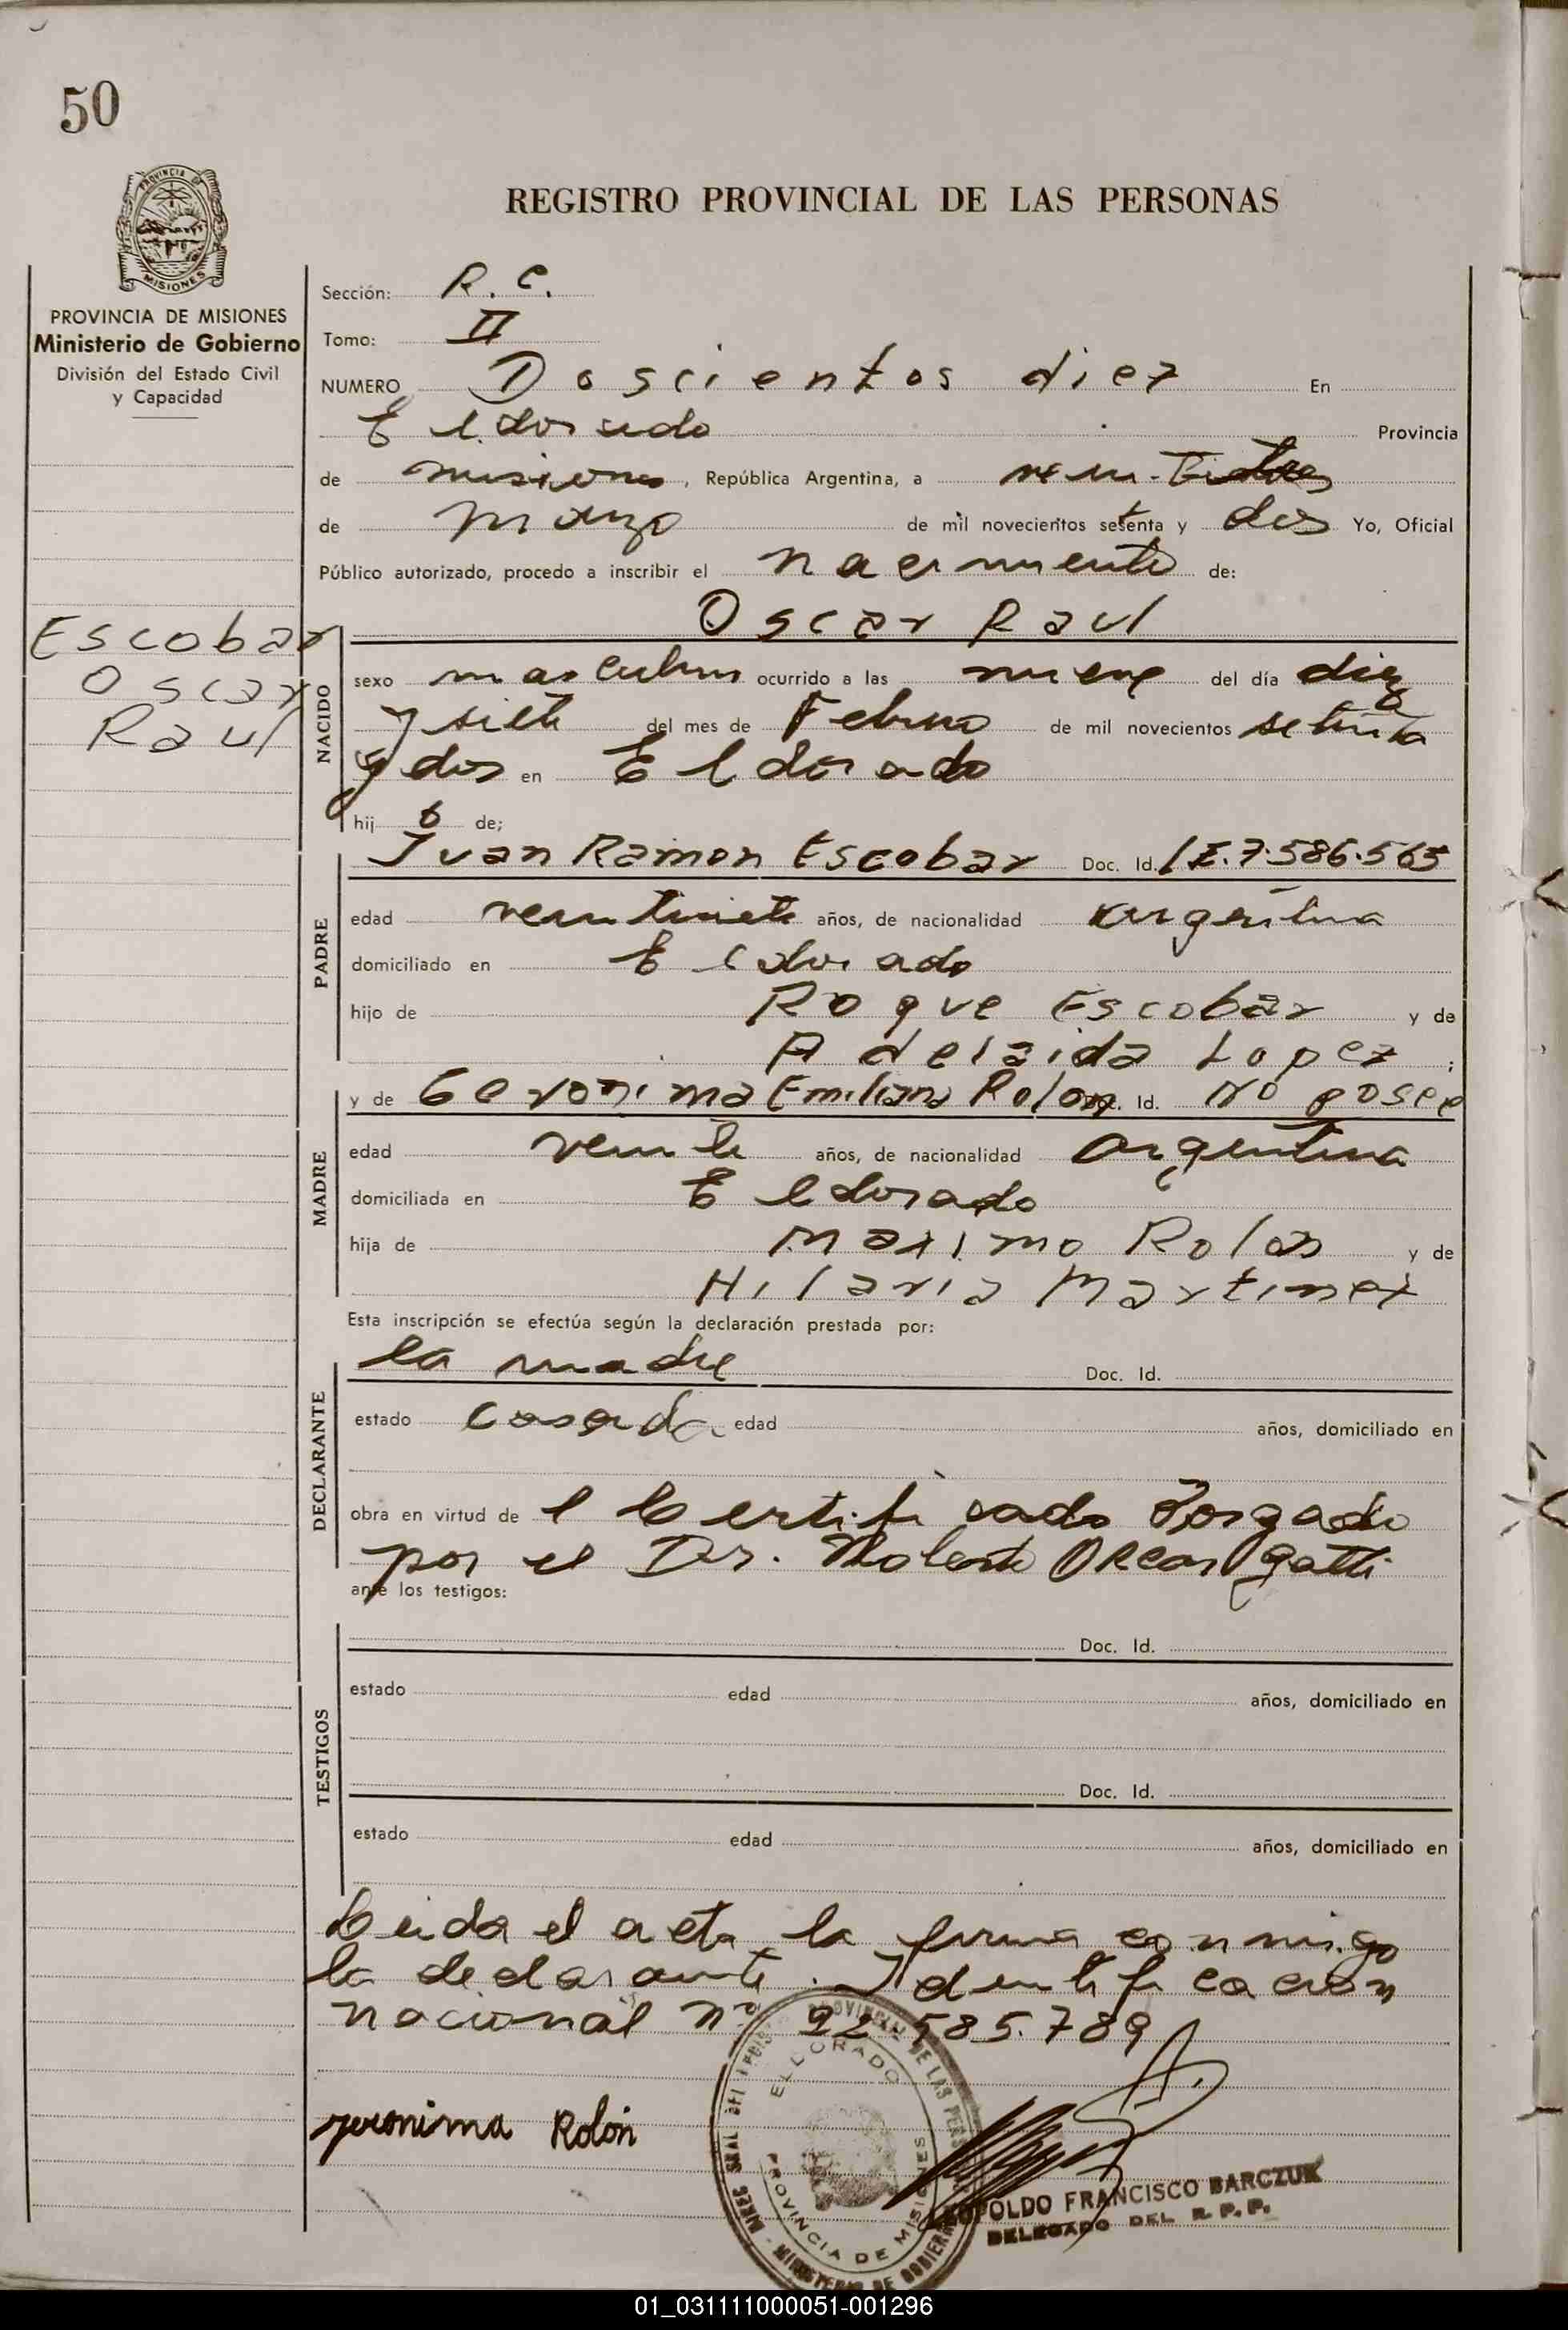 50
PROVINCIA DE
MISIONES
REGISTRO PROVINCIAL DE LAS PERSONAS
PROVINCIA DE MISIONES
Ministerio de Gobierno
División del Estado Civil
y Capacidad
Escobar
Oscar
Raul
Sección: R. C.
Tomo: II
NUMERO Doscientos diez En
Eldorado Provincia
de misiones, República Argentina, a
de marzo de mil novecientos setenta y dos Yo, Oficial
Público autorizado, procedo a inscribir el nacimiento de:
Oscar Raul
NACIDO
sexo masculino ocurrido a las nueve del día diez
y siete del mes de Febrero de mil novecientos setenta
y dos en Eldorado
hij o de;
Juan Ramon Escobar Doc. Id. L.E. 7.586.565
PADRE
edad veintisiete años, de nacionalidad argentina
domiciliado en Eldorado
hijo de Roque Escobar y de
Adelaida Lopez ;
y de Geronima Emiliana Rolon Id. No posee
MADRE
edad veinte años, de nacionalidad argentina
domiciliada en Eldorado
hija de Maximo Rolon y de
Hilaria Martinez
Esta inscripción se efectúa según la declaración prestada por:
la madre Doc. Id.
DECLARANTE
estado casada edad años, domiciliado en
obra en virtud de l Certificado
por el Dr. Oscar Gatti
ante los testigos:
TESTIGOS
Doc. Id.
estado edad años, domiciliado en
Doc. Id.
estado edad años, domiciliado en
Leida el acta la firma conmigo
la declarante. Identificación
nacional nº 22.585.789
Jeronima Rolón
ELDORADO
PROVINCIA DE MISIONES
MINISTERIO DE GOBIERNO
LEOPOLDO FRANCISCO BARCZUK
DELEGADO DEL R. P. P.
01_031111000051-001296